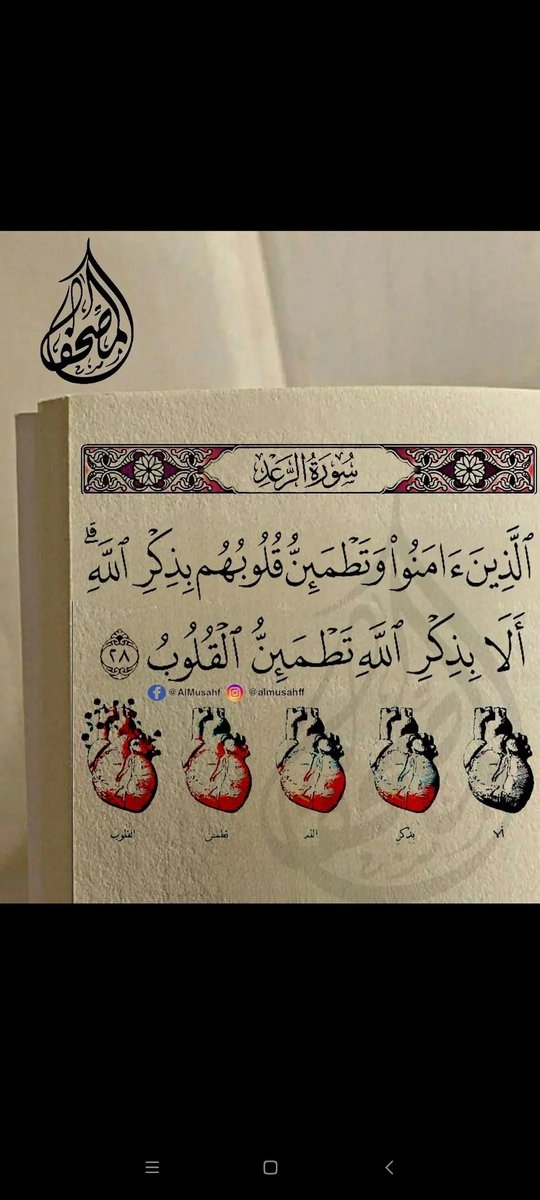 المصحف
سُورَةُ الرَّعْدِ
ٱلَّذِينَ ءَامَنُوا۟ وَتَطْمَئِنُّ قُلُوبُهُم بِذِكْرِ ٱللَّهِ ۗ
أَلَا بِذِكْرِ ٱللَّهِ تَطْمَئِنُّ ٱلْقُلُوبُ ٢٨
@AlMusahf @almusahff
ألا بذكر الله تطمئن القلوب